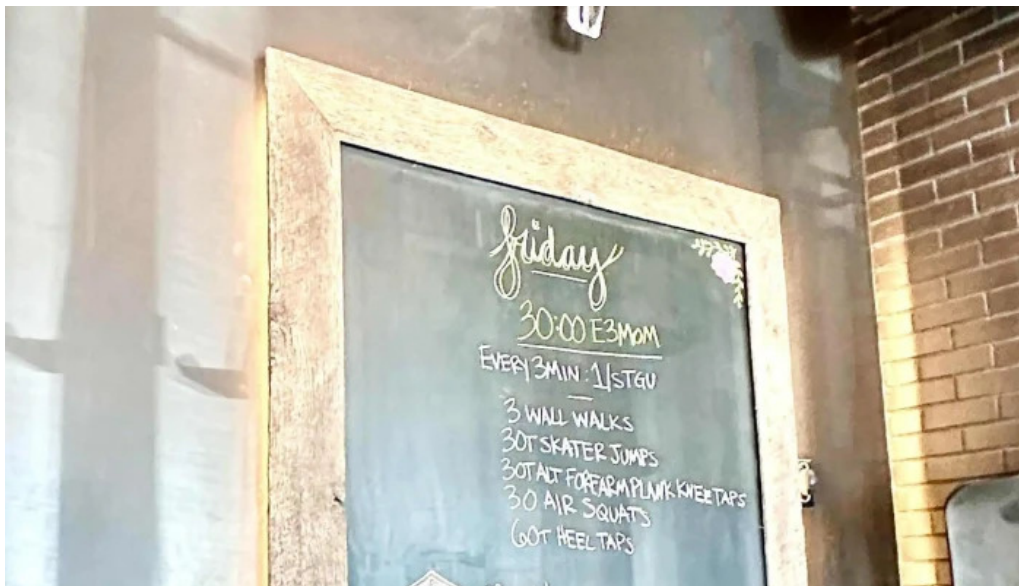 friday
30:00 E3MOM
EVERY 3MIN : 1/STGU
3 WALL WALKS
30T SKATER JUMPS
30T ALT FOREARM PLANK KNEE TAPS
30 AIR SQUATS
60T HEEL TAPS